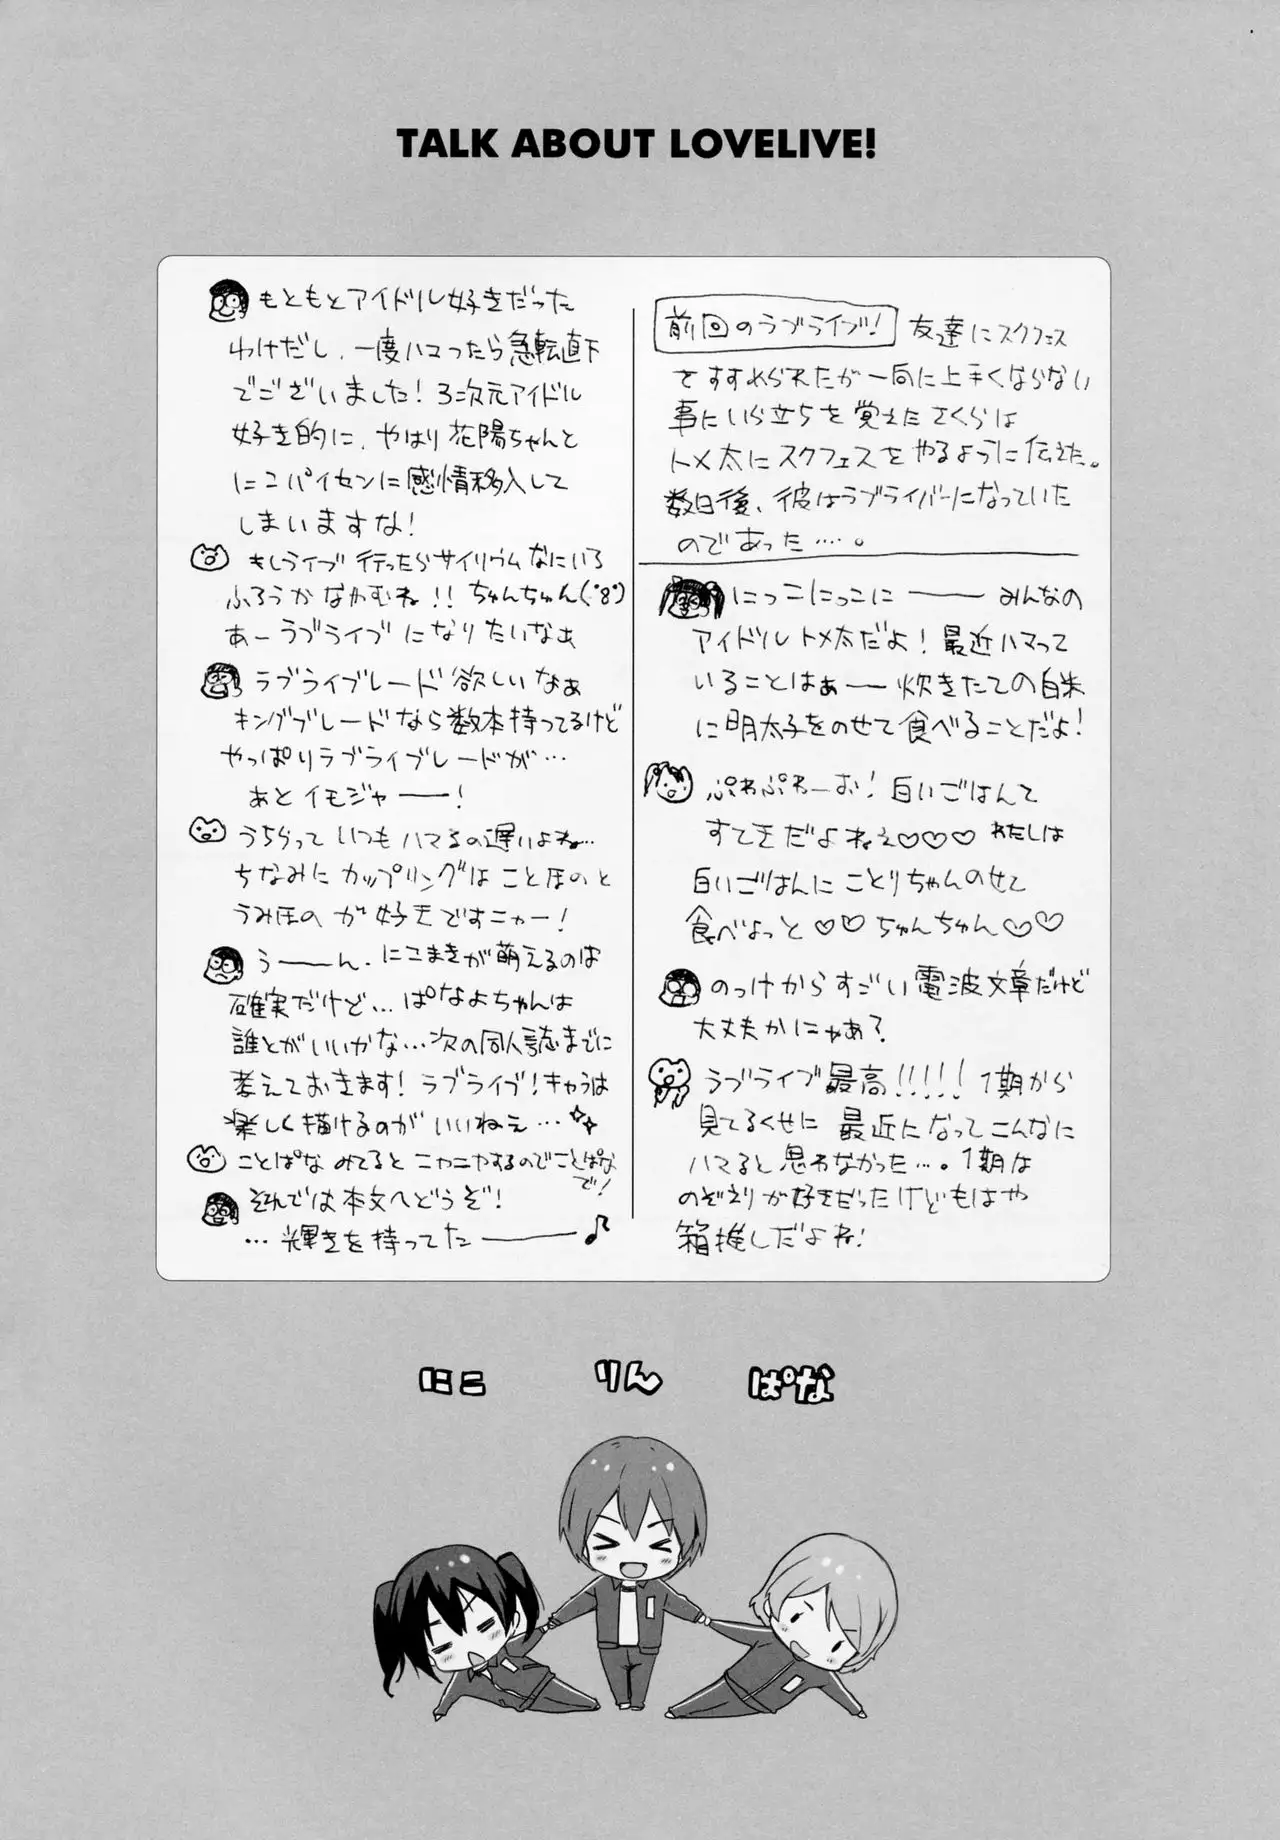 TALK ABOUT LOVELIVE!
前回のラブライブ! 友達にスクフェス
をすすめられたが一向に上手くならない
事にいら立ちを覚えたさくらは
トメ太にスクフェスをやるように伝えた。
数日後、彼はラブライバーになっていた
のであった…。
にっこにっこに―― みんなの
アイドルトメ太だよ!最近ハマって
いることはぁー― 炊きたての白米
に明太子をのせて食べることだよ!
ぷわぷわーお!白いごはんて
すてきだよねぇ♡♡♡ わたしは
白いごはんにことりちゃんのせて
食べよっと♡♡ちゅんちゅん♡♡
のっけからすごい電波文章だけど
大丈夫かにゃあ?
ラブライブ最高!!!!! 1期から
見てるくせに 最近になってこんなに
ハマると思わなかった…。1期は
のぞえりが好きだったけどもはや
箱推しだよね!
もともとアイドル好きだった
わけだし、一度ハマったら急転直下
でございました!3次元アイドル
好き的に、やはり花陽ちゃんと
にこパイセンに感情移入して
しまいますな!
もしライブ行ったらサイリウムなにいろ
ふろうかなかむね!! ちゅんちゅん(・8・)
あーラブライブになりたいなぁ
ラブライブレード欲しいなぁ
キングブレードなら数本持ってるけど
やっぱりラブライブレードが…
あとイモジャー―!
うちらって いつもハマるの遅いよね…
ちなみにカップリングはことほのと
うみほのが好きですニャー!
う――ん、にこまきが萌えるのは
確実だけど…ぱなよちゃんは
誰とがいいかな…次の同人誌までに
考えておきます!ラブライブ!キャラは
楽しく描けるのがいいねぇ…
ことぱなみてるとニヤニヤするのでことぱな
で!
それでは本文へどうぞ!
…輝きを持ってた――♪
にこ りん ぱな